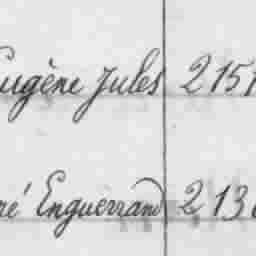 Eugène Jules 2151
ré Enguerrand 213